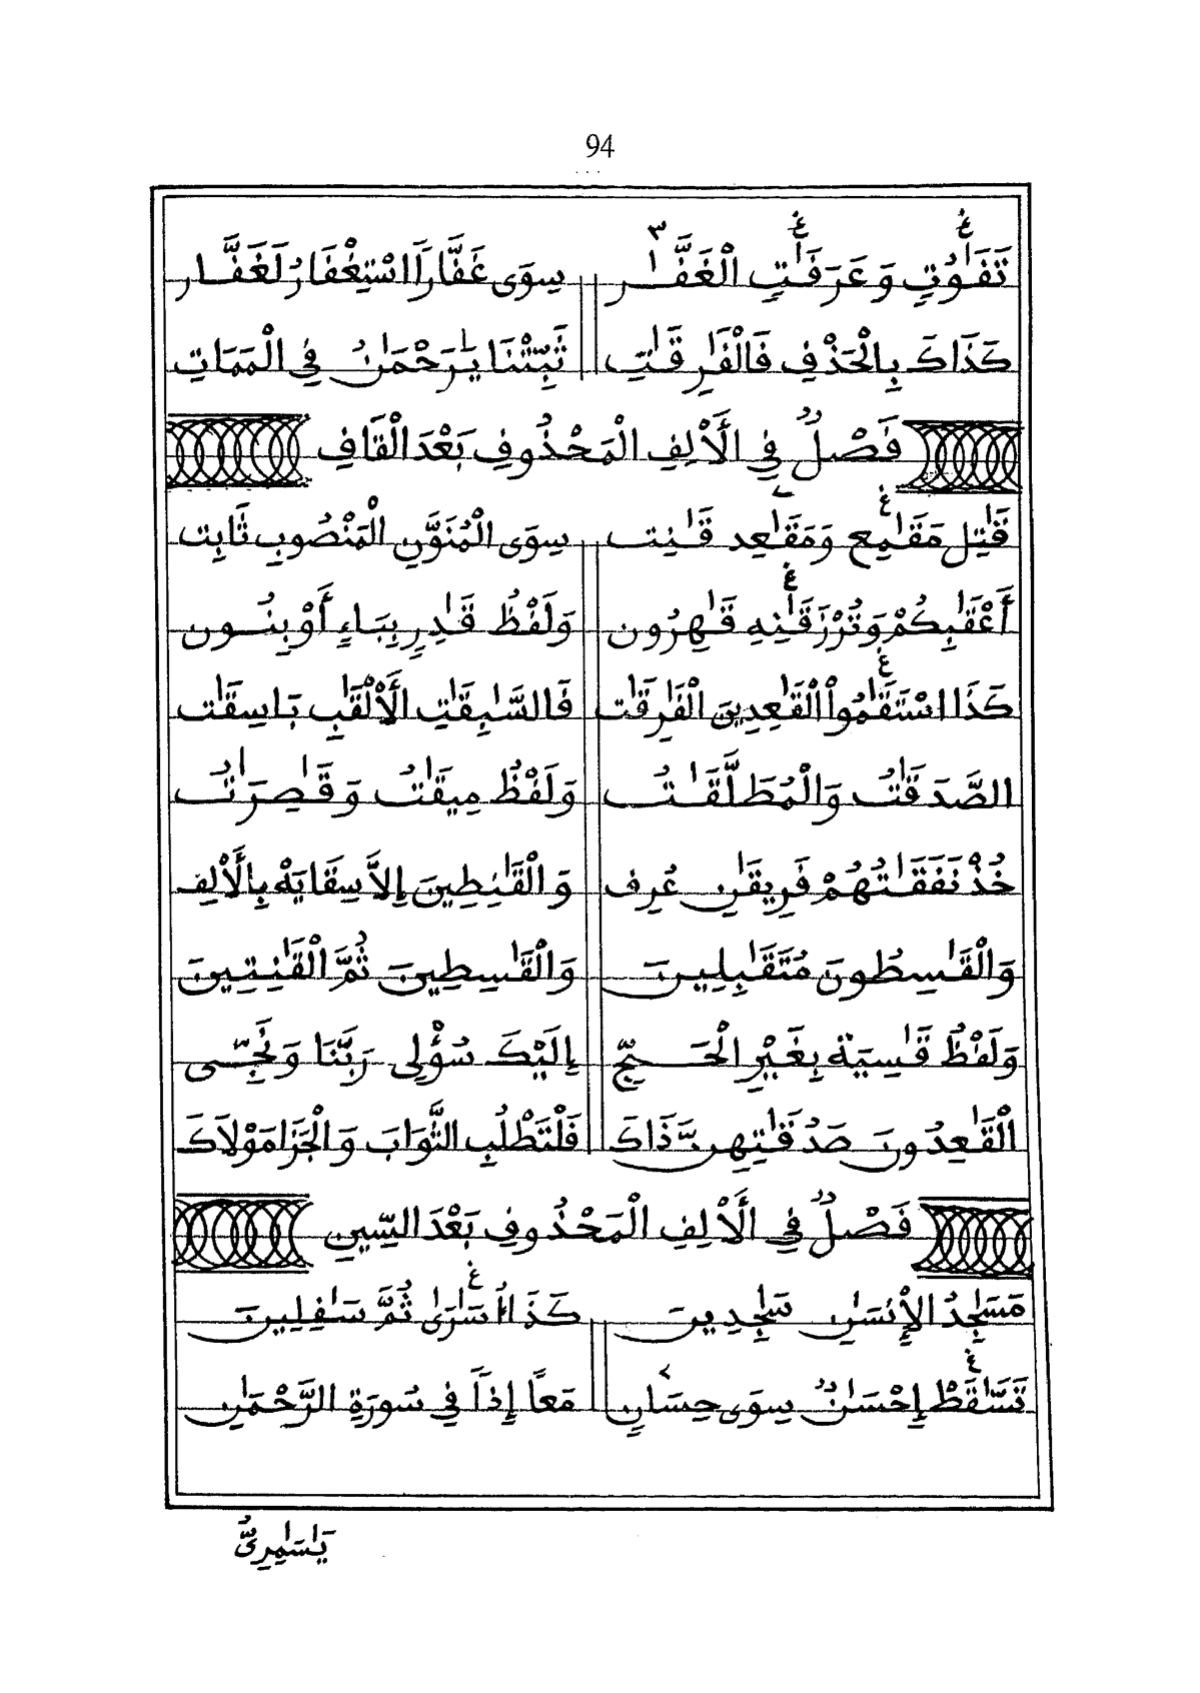 94
تَفَٰوُتٍ وَعَرَفَٰتٍ الْغَفَّٰر سِوَى غَفَّاراً اسْتِغْفَارُ لَغَفَّار
كَذَاكَ بِالْحَذْفِ فَالْفَٰرِقَٰتِ ثَبِّتْنَا يَٰرَحْمَٰنُ فِي الْمَمَاتِ
فَصْلٌ فِي الْأَلِفِ الْمَحْذُوفِ بَعْدَ الْقَافِ
قَٰتِل مَقَٰمِع وَمَقَٰعِد قَٰنِت سِوَى الْمُنَوَّنِ الْمَنْصُوبِ ثَابِت
أَعْقَٰبِكُمْ وَتُرْزَقَٰنِهِ قَٰهِرُون وَلَفْظُ قَٰدِرٍ بِبَاءٍ أَوْ بِنُون
كَذَا اسْتَقَٰمُواْ الْقَٰعِدِينَ الْفَٰرِقَٰت فَالسَّٰبِقَٰتِ الْأَلْقَٰبِ بَاسِقَٰت
الصَّدَقَٰتُ وَالْمُطَلَّقَٰتُ وَلَفْظُ مِيقَٰتُ وَقَٰصِرَٰتُ
خُذْ نَفَقَٰتُهُمْ فَرِيقَٰنِ عُرِف وَالْقَٰنِطِينَ إِلاَّ سِقَايَةْ بِالْأَلِف
وَالْقَٰسِطُونَ مُتَقَٰبِلِينَ وَالْقَٰسِطِينَ ثُمَّ الْقَٰنِتِينَ
وَلَفْظُ قَٰسِيَة بِغَيْرِ الْحَجِّ إِلَيْكَ سُؤْلِي رَبَّنَا وَنَجِّى
الْقَٰعِدُونَ صَدُقَٰتِهِنَّ ذَاكَ فَلْتَطْلُبِ الثَّوَابَ وَالْجَزَا مَوْلاَكَ
فَصْلٌ فِي الْأَلِفِ الْمَحْذُوفِ بَعْدَ السِّينِ
مَسَٰجِدُ الْإِنسَٰنِ سَٰجِدِينَ كَذَا أُسَٰرَىٰ ثُمَّ سَٰفِلِينَ
تَسَّٰقَطْ إِحْسَٰنٌ سِوَى حِسَانٍ مَعاً إِذاً فِي سُورَةِ الرَّحْمَٰنِ
يَٰسَٰمِرِيُّ